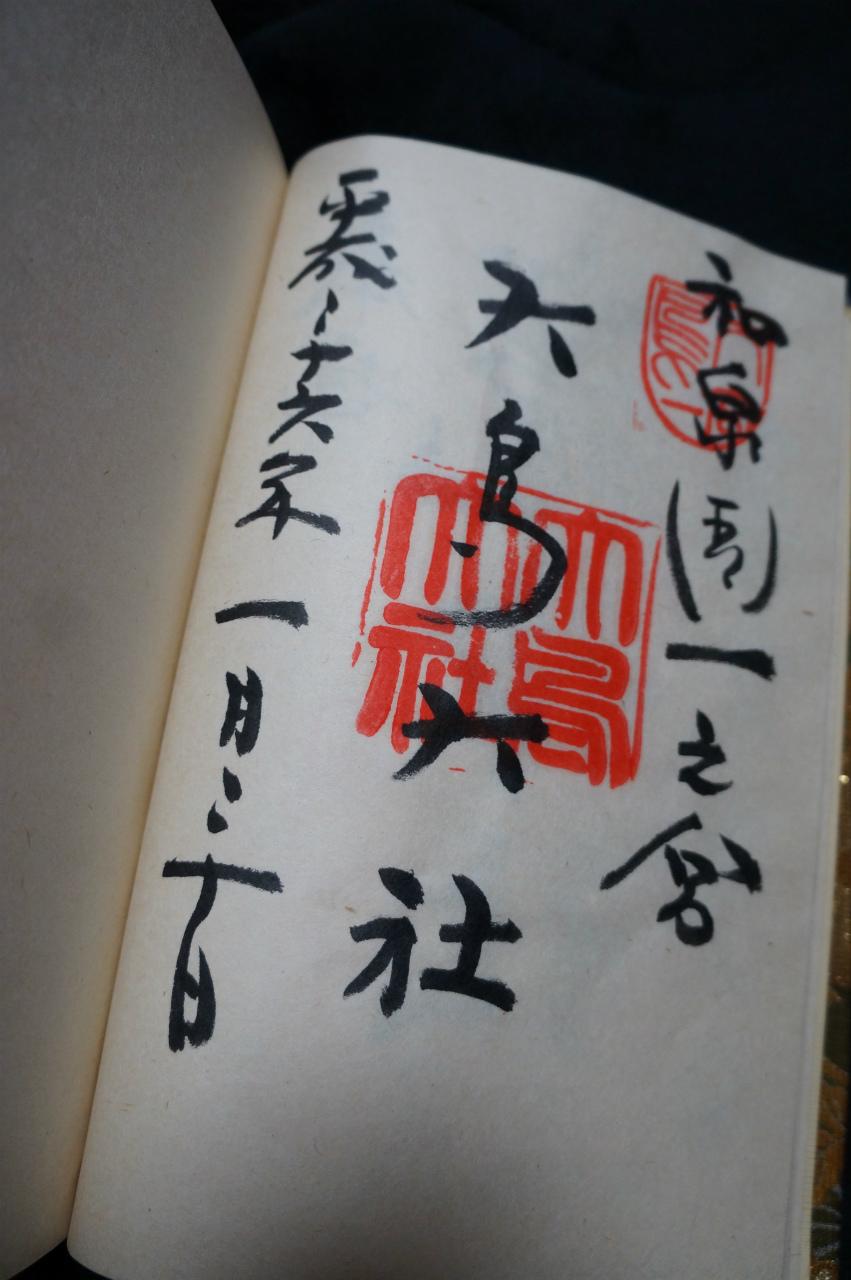 和泉国一之宮
大鳥大社
平成二十六年一月二十日
大鳥
大社